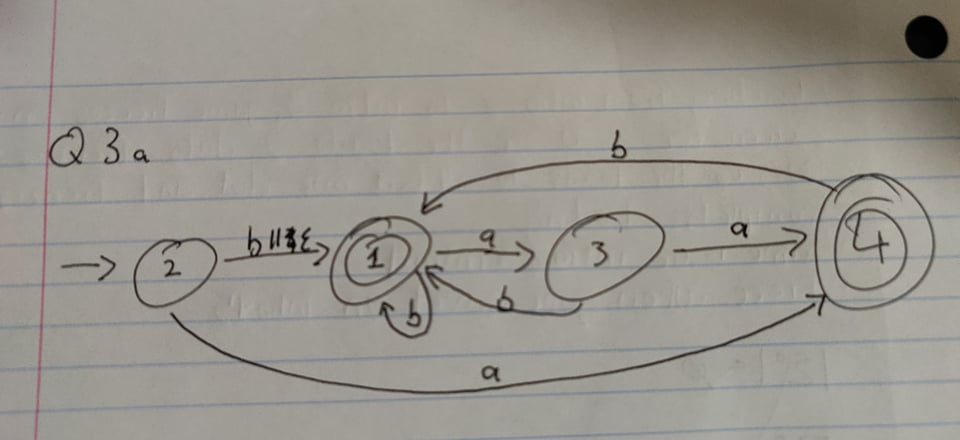 Q 3 a
b
2
b
ε
1
a
3
a
4
b
b
a